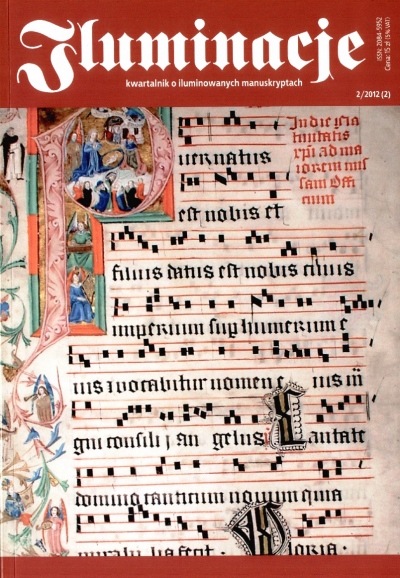 Iluminacje
kwartalnik o iluminowanych manuskryptach
ISSN: 2084-5952
Cena: 15 zł (5% VAT)
2/2012 (2)
In die
ad ma
iorem mis
sam Offi
cium
P
uer natus
est nobis et
filius datus est nobis cuius
imperium sup humerum e
ius i vocabitur nomen e ius
gni consili j an gelus Cantate
domino canticum novum quia
fecit. Gloria.